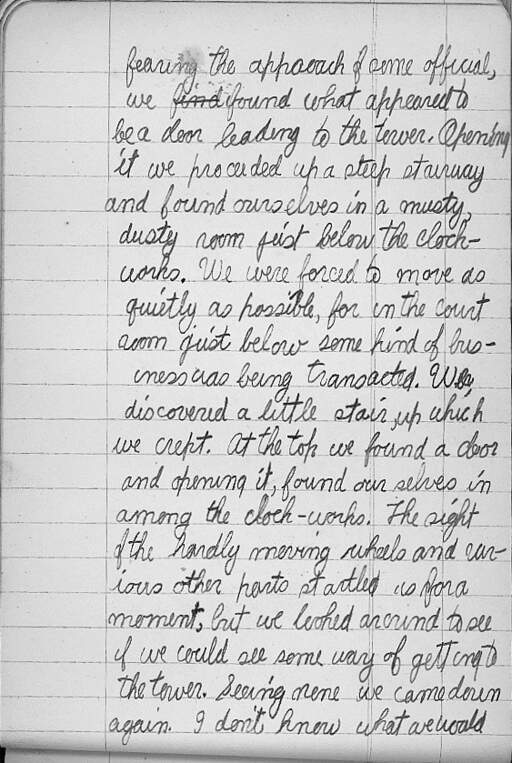 fearing the approach of some official,
we find found what appeared to
be a door leading to the tower. Opening
it we proceeded up a steep stairway
and found ourselves in a musty,
dusty room just below the clock-
works. We were forced to move as
quietly as possible, for in the court
room just below some kind of bus-
iness was being transacted. We
discovered a little stair, up which
we crept. At the top we found a door
and opening it, found our selves in
among the clock-works. The sight
of the hardly moving wheels and var-
ious other parts startled us for a
moment, but we looked around to see
if we could see some way of getting to
the tower. Seeing none we came down
again. I don't know what we would